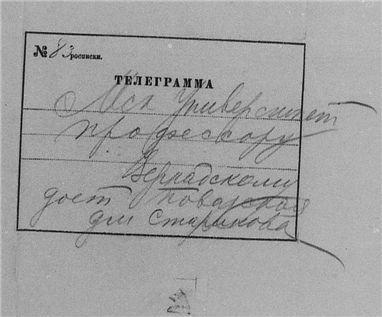 № 83 росписки.
ТЕЛЕГРАММА
Мск Университет
профессору
Вернадскому
дост Поварская
для Старикова